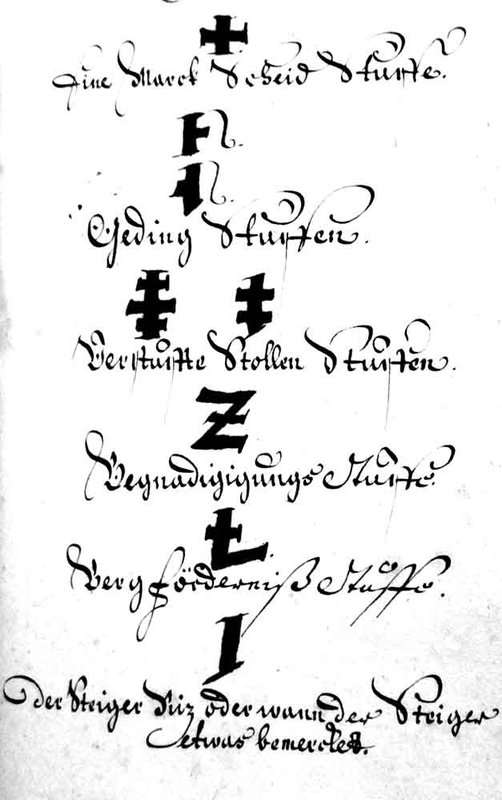 Eine Marck Scheid Stuffe.
Geding Stuffen.
Verstuffte Stollen Stuffen.
Z
Begnadigigungs Stuffe.
Ł
Bergförderniß Stuffe.
I
der Steiger Riz oder wann der Steiger
etwas bemercket.